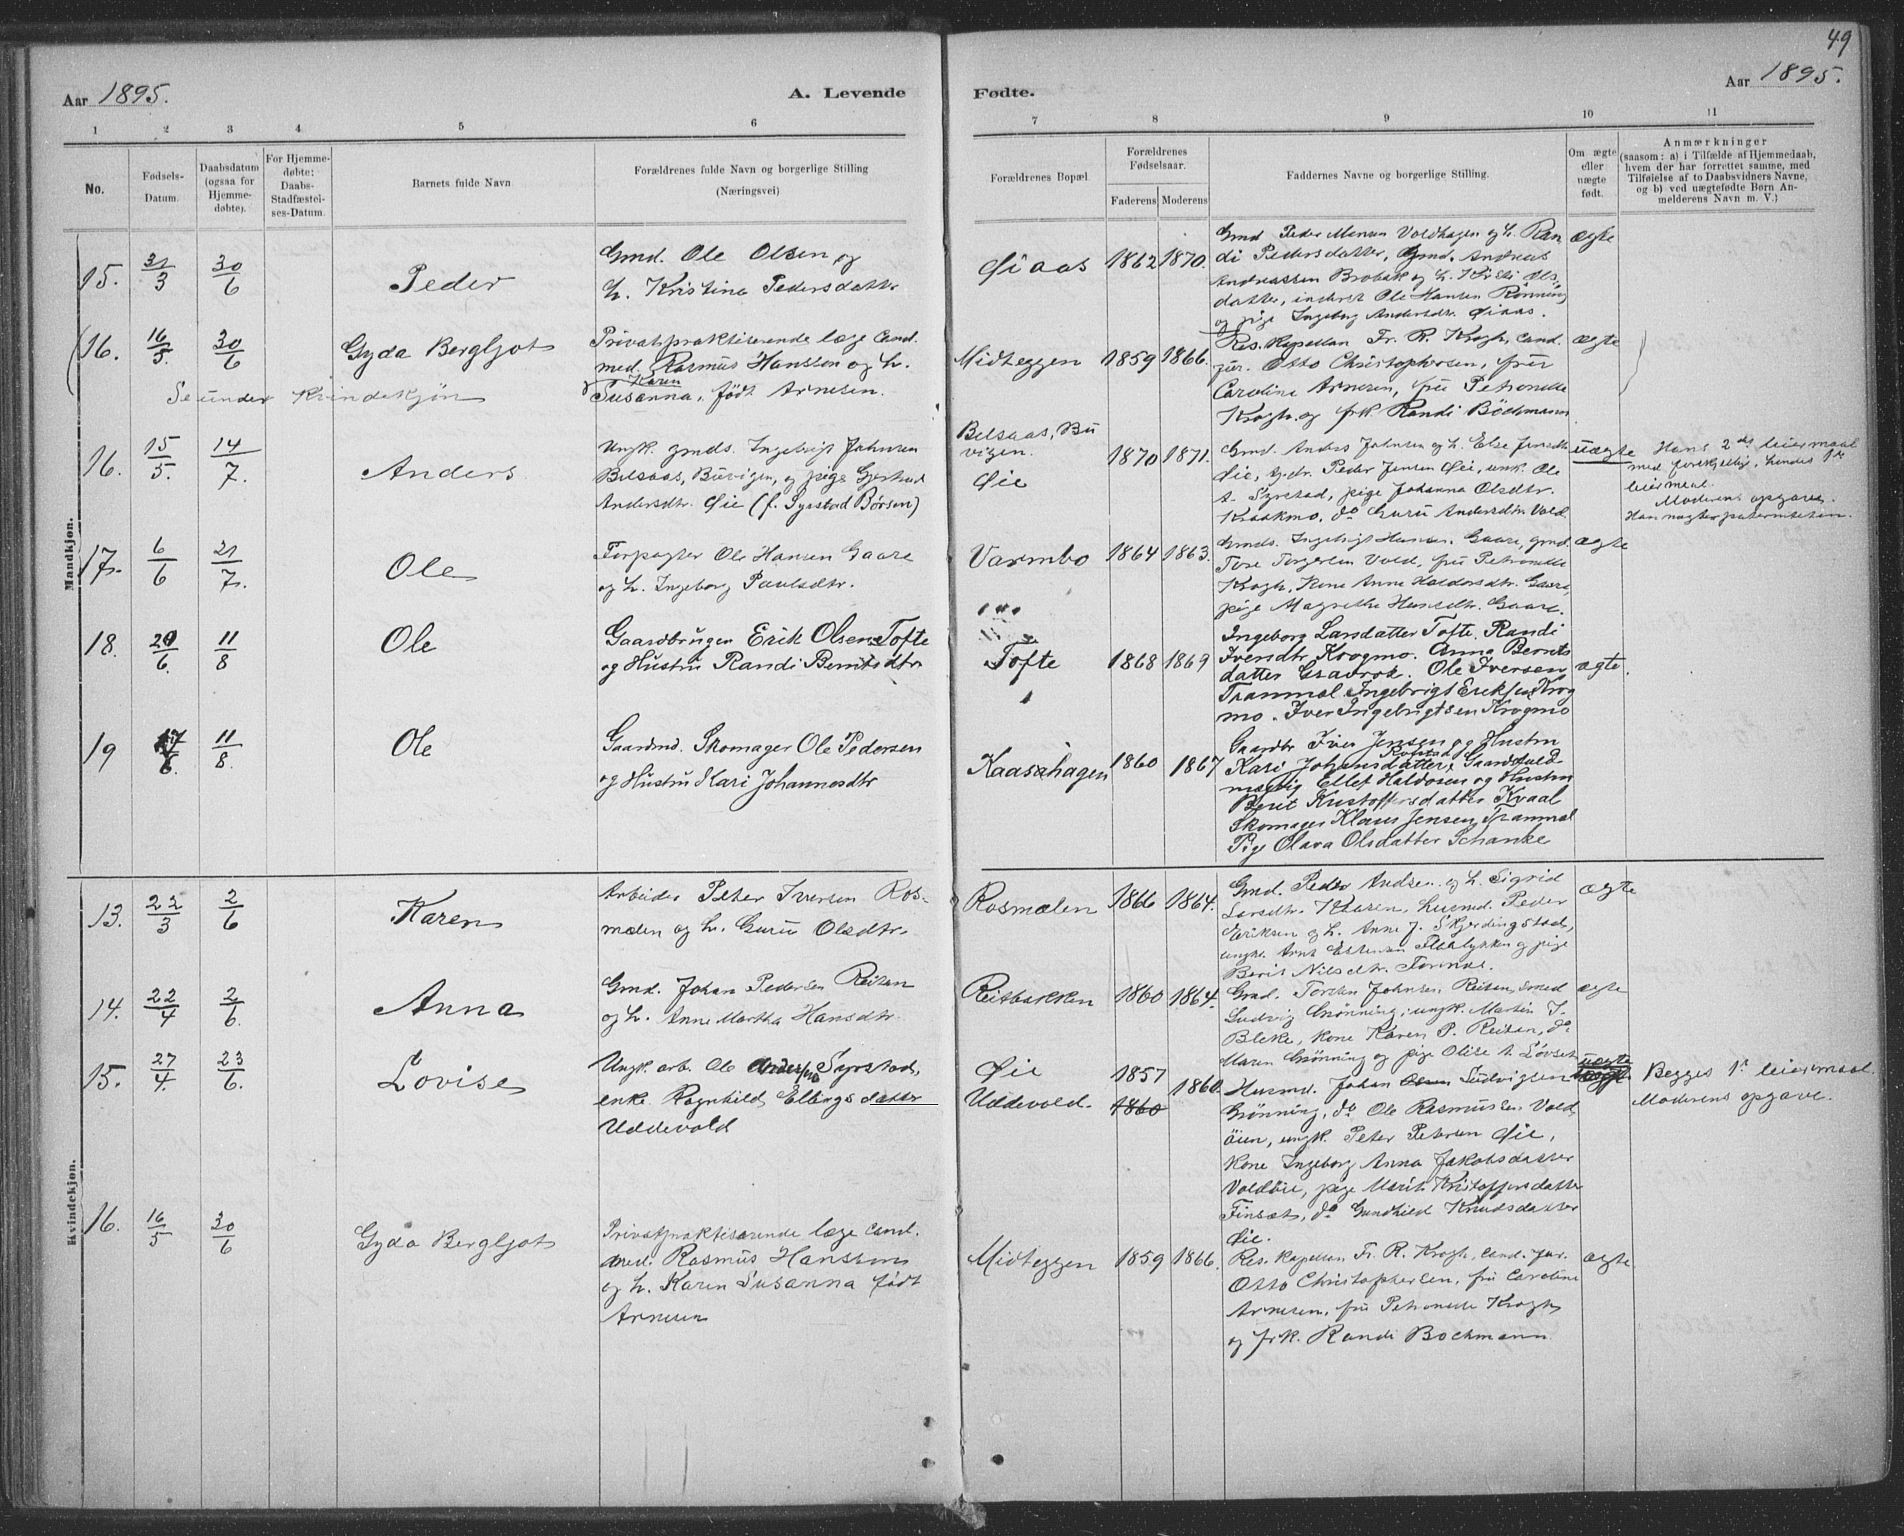 49
Aar 1895.
A. Levende Fødte.
Aar 1895.
1 2 3 4 5 6 7 8 9 10 11
No.
Fødsels-Datum.
Daabsdatum (ogsaa for Hjemme-døbte).
For Hjemme-døbte: Daabs-Stadfæstel-ses-Datum.
Barnets fulde Navn
Forældrenes fulde Navn og borgerlige Stilling
(Næringsvei).
Forældrenes Bopæl.
Forældrenes Fødselsaar.
Faderens Moderens
Faddernes Navne og borgerlige Stilling.
Om ægte eller uægte født.
Anmærkninger
(saasom: a) i Tilfælde af Hjemmedaab,
hvem der har forrettet samme, med
Tilføielse af to Daabsvidners Navne,
og b) ved uægtefødte Børn An-
melderens Navn m. V.)
Mandkjøn.
15. 31/3 30/6 Peder
Gmd. Ole Olsen og
h. Kristina Pedersdatter
Øiaas 1862 1870.
Gmd Peder Monsen Voldhagen og h. Ran
di Pedersdatter, Gmd. Andreas
Andreassen Brobak og h. Kirsti Ols
datter, inderst Ole Hansen Rønning
og pige Ingeborg Andersdtr. Øiaas.
ægte
16. 16/5 30/6 Gyda Bergljot
Privatpraktiserende læge Cand.
med. Rasmus Hansson og h.
Karen
Susanna, født Arnesen.
Se under Kvindekjøn
Midteggen 1859 1866.
Res. Kapellan Fr. R. Krogh, Cand.
jur. Otto Christophersen, fru
Caroline Arnesen, fru Petronelle
Krogh og frk. Randi Bøckmann
ægte
16. 15/5 14/7. Anders
Ungk. gmds. Ingebrigt Johnsen
Belsaas, Buvigen, og pige Gjertrud
Andersdtr. Øie (f. Syrstad Børsen)
Belsaas, Bu
vigen.
Øie
1870 1871.
Gmd. Anders Johnsen og h. Else Jensdtr
Øie, gdr. Peder Jensen Øie, unk. Ole
A. Syrstad, pige Johanna Olsdtr.
Kraakmo, do Guru Andersdtr Vold
uægte
Hans 2det leiermaal
med forskjellig, hendes 1ste
leiermaal.
Moderens opgave.
Han nægter paterniteten.
17. 6/6 21/7. Ole
Forpagter Ole Hansen Gaare
og h. Ingeborg Paulsdtr.
Varmbo 1864 1863.
Gmds. Ingebrigt Hansen Gaare, gmd.
Tore Torgersen Vold, fru Petronelle
Krogh, Kone Anne Haldorsdtr. Gaare,
pige Magrethe Hansdtr. Gaare.
ægte
18. 20/6 11/8 Ole
Gaardbruger Erik Olsen Tofte
og Hustru Randi Berntsdtr
Tofte 1868 1869
Ingeborg Larsdatter Tofte. Randi
Iversdtr Krogmo. Anna Bernts
datter Gravrok. Ole Iversen
Trammal. Ingebrigt Eriksen Krog
mo. Iver Ingebrigtsen Krogmo
ægte.
19 17/6. 11/8. Ole
Gaardmd. Skomager Ole Pedersen
og Hustru Mari Johannesdtr
Kaasahagen 1860 1867
Gaardbr Iver Jensen og Hustru
Kari Johansdatter, Gaardfuld
mægtig Ellef Haldosen og Hustru
Berit Kristoffersdatter Kvaal
Skomager Klaus Jensen Trammal
Pige Olava Olsdatter Schanke
Kvindekjøn.
13. 22/3 2/6 Karen
Arbeider Peter Iversen Ros-
mælen og h. Guru Olsdtr.
Rosmælen 1866 1864.
Gmd. Peder Andsen og h. Sigrid
Larsdtr. Kaaren, husmd. Peder
Eriksen og h. Anne J. Skjerdingstad,
ungk. Arnt Estensen Flaalykken og pige
Berit Nilsdtr. Formoe.
ægte
14. 22/4 2/6. Anna
Gmd. Johan Pedersen Reitan
og h. Anne Martha Hansdtr.
Reitbakken 1860 1864.
Gmd. Torsten Johnsen Reitan, smed
Ludvig Grønning, ungk. Martin I.
Bleke, kone Karen P. Reitan, do
Maren Grønning og pige Olise A. Løvset
ægte
15. 27/4. 23/6. Lovise
Ungk. arb. Ole Andersen Syrstad,
enke Ragnhild Ellingsdatter
Uddevold
Øie
Uddevold.
1857
1860
1860.
Husmd. Johan Olsen Ludvigsen
Grønning, do Ole Rasmussen Vold
øien, ungk. Peter Petersen Øie,
kone Ingeborg Anna Jakobsdatter
Voldøie, pige Marit Kristoffersdatter
Finsæt, do Gundhild Knudsdatter
Øie.
uægte
Begges 1ste leiermaal
Moderens opgave.
16. 16/5 30/6 Gyda Bergljot
Privatpraktiserende læge Cand.
med. Rasmus Hansson
og h. Karen Susanna født
Arnesen
Midteggen 1859 1866.
Res. Kapellan Fr. R. Krogh, Cand. jur.
Otto Christophersen, fru Caroline
Arnesen, fru Petronelle Krogh
og frk. Randi Bochmann.
ægte